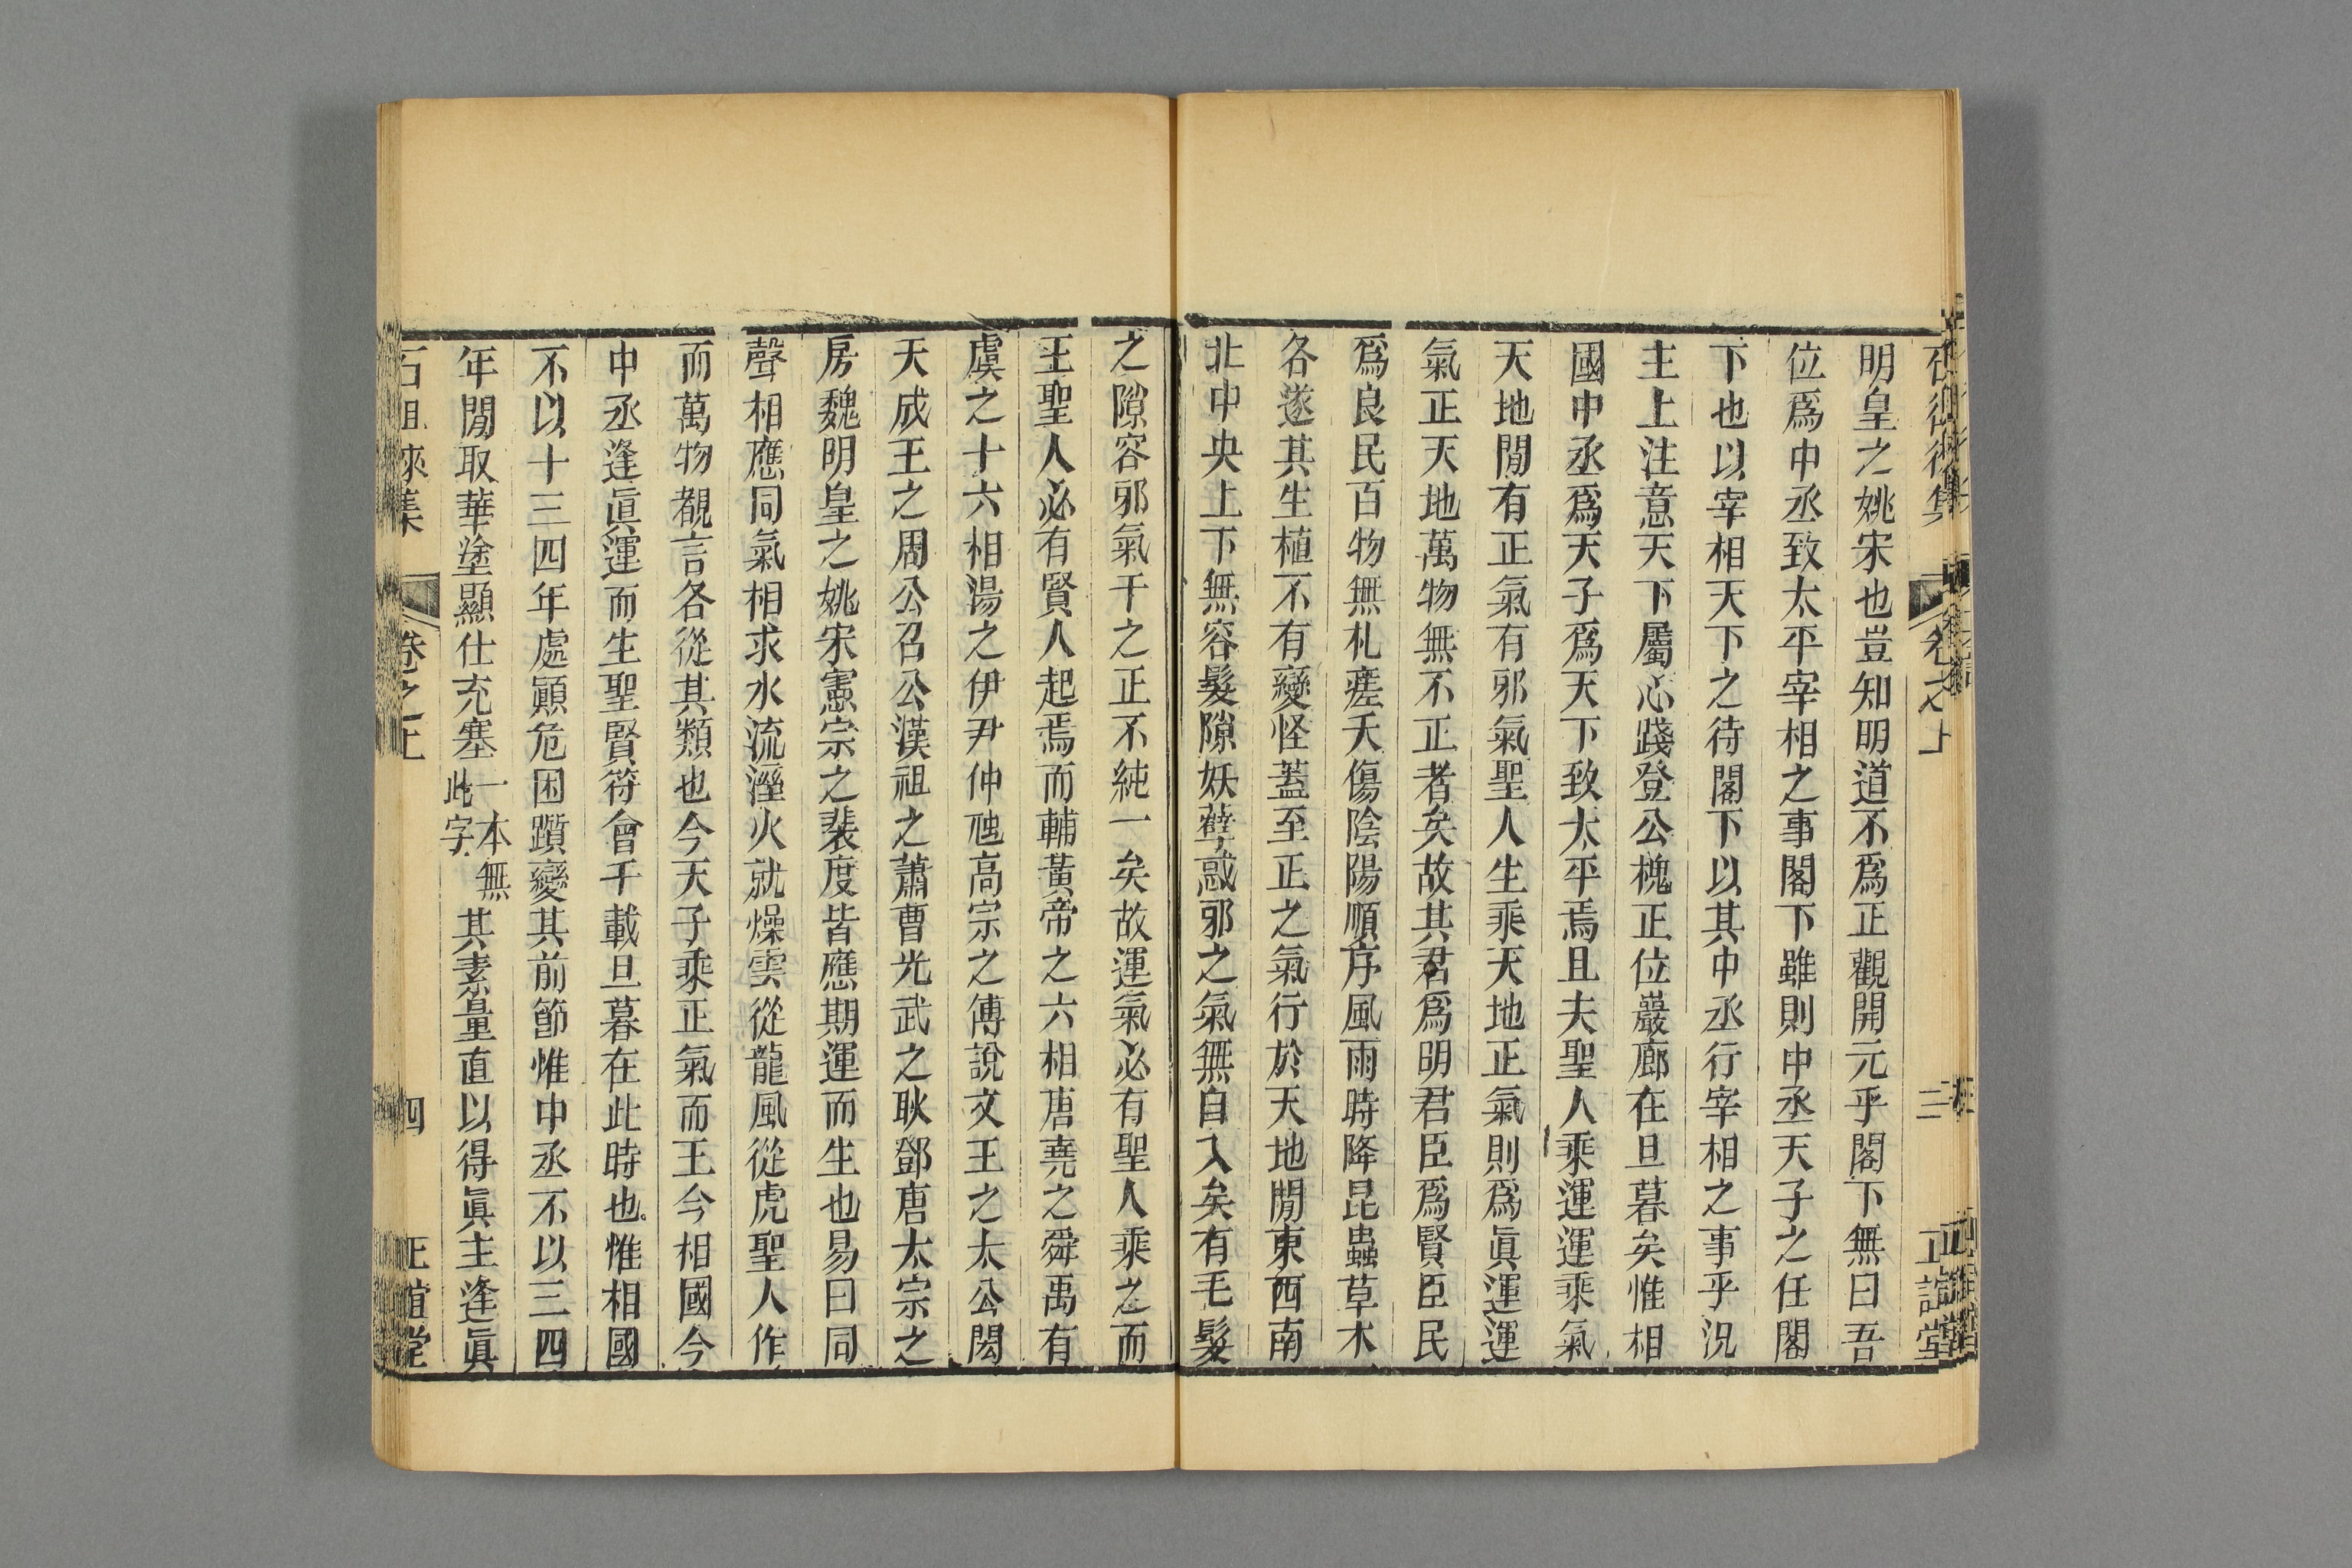 明皇之姚宋也豈知明道不爲正觀開元乎閣下無曰吾
位爲中丞致太平宰相之事閣下雖則中丞天子之任閣
下也以宰相天下之待閣下以其中丞行宰相之事乎況
主上注意天下屬心踐登公槐正位巖廊在旦暮矣惟相
國中丞爲天子爲天下致太平焉且夫聖人乘運運乘氣
天地閒有正氣有邪氣聖人生乘天地正氣則爲眞運運
氣正天地萬物無不正者矣故其君爲明君臣爲賢臣民
爲良民百物無札瘥夭傷陰陽順序風雨時降昆蟲草木
各遂其生植不有變怪蓋至正之氣行於天地閒東西南
北中央上下無容髮隙妖孽惑邪之氣無自入矣有毛髮
之隙容邪氣干之正不純一矣故運氣必有聖人乘之而
王聖人必有賢人起焉而輔黃帝之六相唐堯之舜禹有
虞之十六相湯之伊尹仲虺高宗之傅說文王之太公閎
天成王之周公召公漢祖之蕭曹光武之耿鄧唐太宗之
房魏明皇之姚宋憲宗之裴度皆應期運而生也易曰同
聲相應同氣相求水流溼火就燥雲從龍風從虎聖人作
而萬物覩言各從其類也今天子乘正氣而王今相國今
中丞逢眞運而生聖賢符會千載旦暮在此時也惟相國
不以十三四年處顚危困躓變其前節惟中丞不以三四
年閒取華塗顯仕充塞一本無此字其素量直以得眞主逢眞
石徂徠集 卷之上 四 正誼堂